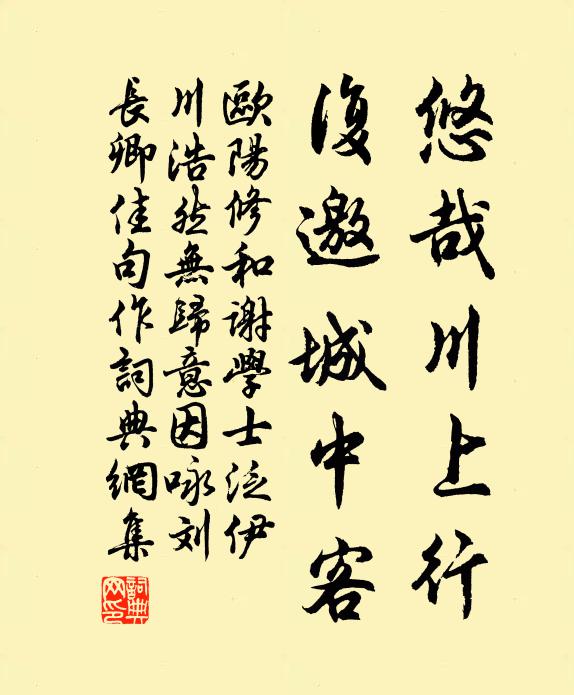 悠哉川上行
復邀城中客
歐陽修和謝學士泛伊
川浩然無歸意因咏刘
長卿佳句作詞典網集
詞典網印